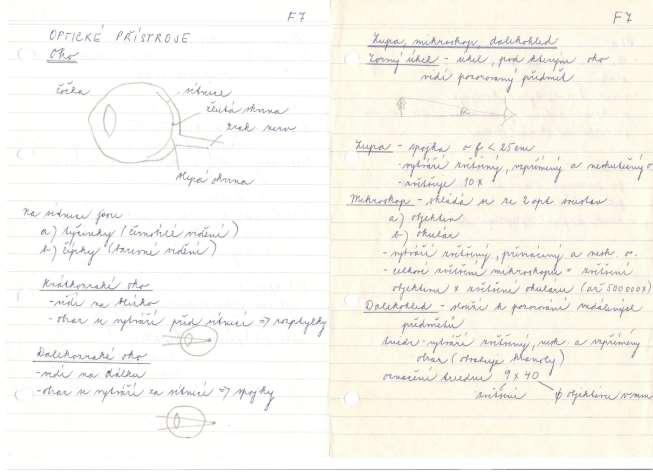 F7
OPTICKÉ PŘÍSTROJE
Oko
čočka
sítnice
žlutá skvrna
zrak. nerv
slepá skvrna
na sítnice jsou
a) tyčinky (černobílé vidění)
b) čípky (barevné vidění)
Krátkozraké oko
-vidí na blízko
-obraz se vytváří před sítnicí => rozptylky
Dalekozraké oko
-vidí na dálku
-obraz se vytváří za sítnicí => spojky
F7
Lupa, mikroskop, dalekohled
Zorný úhel - úhel, pod kterým oko
vidí pozorovaný předmět
Lupa - spojka o f < 25cm
-vytváří zvětšený, vzpřímený a neskutečný o.
-zvětšuje 10x
Mikroskop - skládá se ze 2 opt. soustav
a) objektiv
b) okulár
-vytváří zvětšený, převrácený a nesk. o.
-celkové zvětšení mikroskopu = zvětšení
objektivu x zvětšení okuláru (až 500 000x)
Dalekohled - slouží k pozorování vzdálených
předmětů
triedr - vytváří zvětšený, nesk. a vzpřímený
obraz (obsahuje hranoly)
označení triedru 9 x 40
zvětšení
φ objektivu v mm